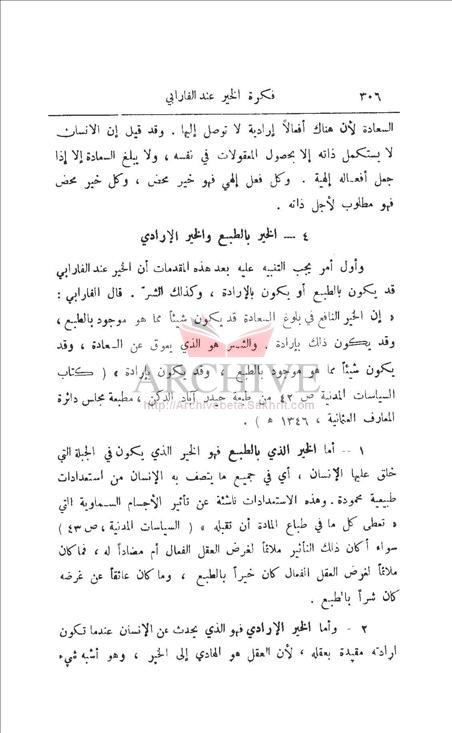 ٣٠٦ فكرة الخير عند الفارابي
السعادة لأن هناك أفعالاً إرادية لا توصل إليها . وقد قيل إن الانسان
لا يستكمل ذاته إلا بحصول المعقولات في نفسه ، ولا يبلغ السعادة إلا إذا
جمل أفعاله إلهية . وكل فعل إلهي فهو خير محض ، وكل خير محض
فهو مطلوب لأجل ذاته .
٤ — الخير بالطبع والخير الإرادي
وأول أمر يجب التنبيه عليه بعد هذه المقدمات أن الخير عند الفارابي
قد يكون بالطبع أو يكون بالإرادة ، وكذلك الشرّ . قال الفارابي :
« إن الخير النافع في بلوغ السعادة قد يكون شيئاً مما هو موجود بالطبع ،
وقد يكون ذلك بإرادة . والشر هو الذي يعوق عن السعادة ، وقد
يكون شيئاً مما هو موجود بالطبع ، وقد يكون بإرادة » ( كتاب
السياسات المدنية ص ٤٢ من طبعة حيدر آباد الدكن ، مطبعة مجلس دائرة
المعارف العثمانية ، ١٣٤٦ ه ) .
ARCHIVE
http://Archivebeta.Sakhrit.com
١ -- أما الخير الذي بالطبع فهو الخير الذي يكون في الجبلة التي
خلق عليها الإنسان ، أي في جميع ما يتصف به الإنسان من استعدادات
طبيعية محمودة . وهذه الاستعدادات ناشئة عن تأثير الأجسام السماوية التي
« تعطى كل ما في طباع المادة أن تقبله » ( السياسات المدنية ، ص ٤٣ )
سواء أكان ذلك التأثير ملائماً لغرض العقل الفعال أم مضاداً له ، فما كان
ملائماً لغرض العقل الفعال كان خيراً بالطبع ، وما كان عائقاً عن غرضه
كان شراً بالطبع .
٢ - وأما الخير الإرادي فهو الذي يحدث عن الإنسان عندما تكون
ارادته مقيدة بعقله ، لأن العقل هو الهادي إلى الخير ، وهو أشبه شيء